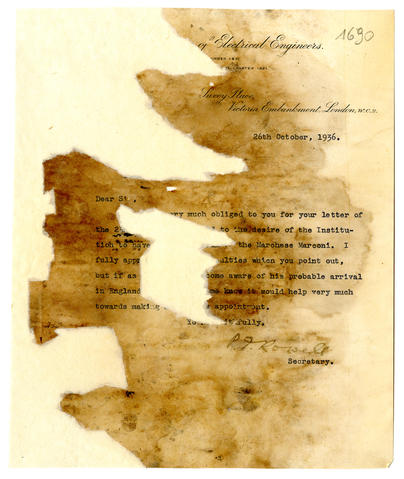 1690
of Electrical Engineers.
Savoy Place,
Victoria Embankment, London, W.C.2.
26th October, 1936.
Dear Si ,
ery much obliged to you for your letter of
the 2 to the desire of the Institu-
tion to have the Marchese Marconi. I
fully app ulties which you point out,
but if as ome aware of his probable arrival
in England know it would help very much
towards making appoint
fully,
Secretary.